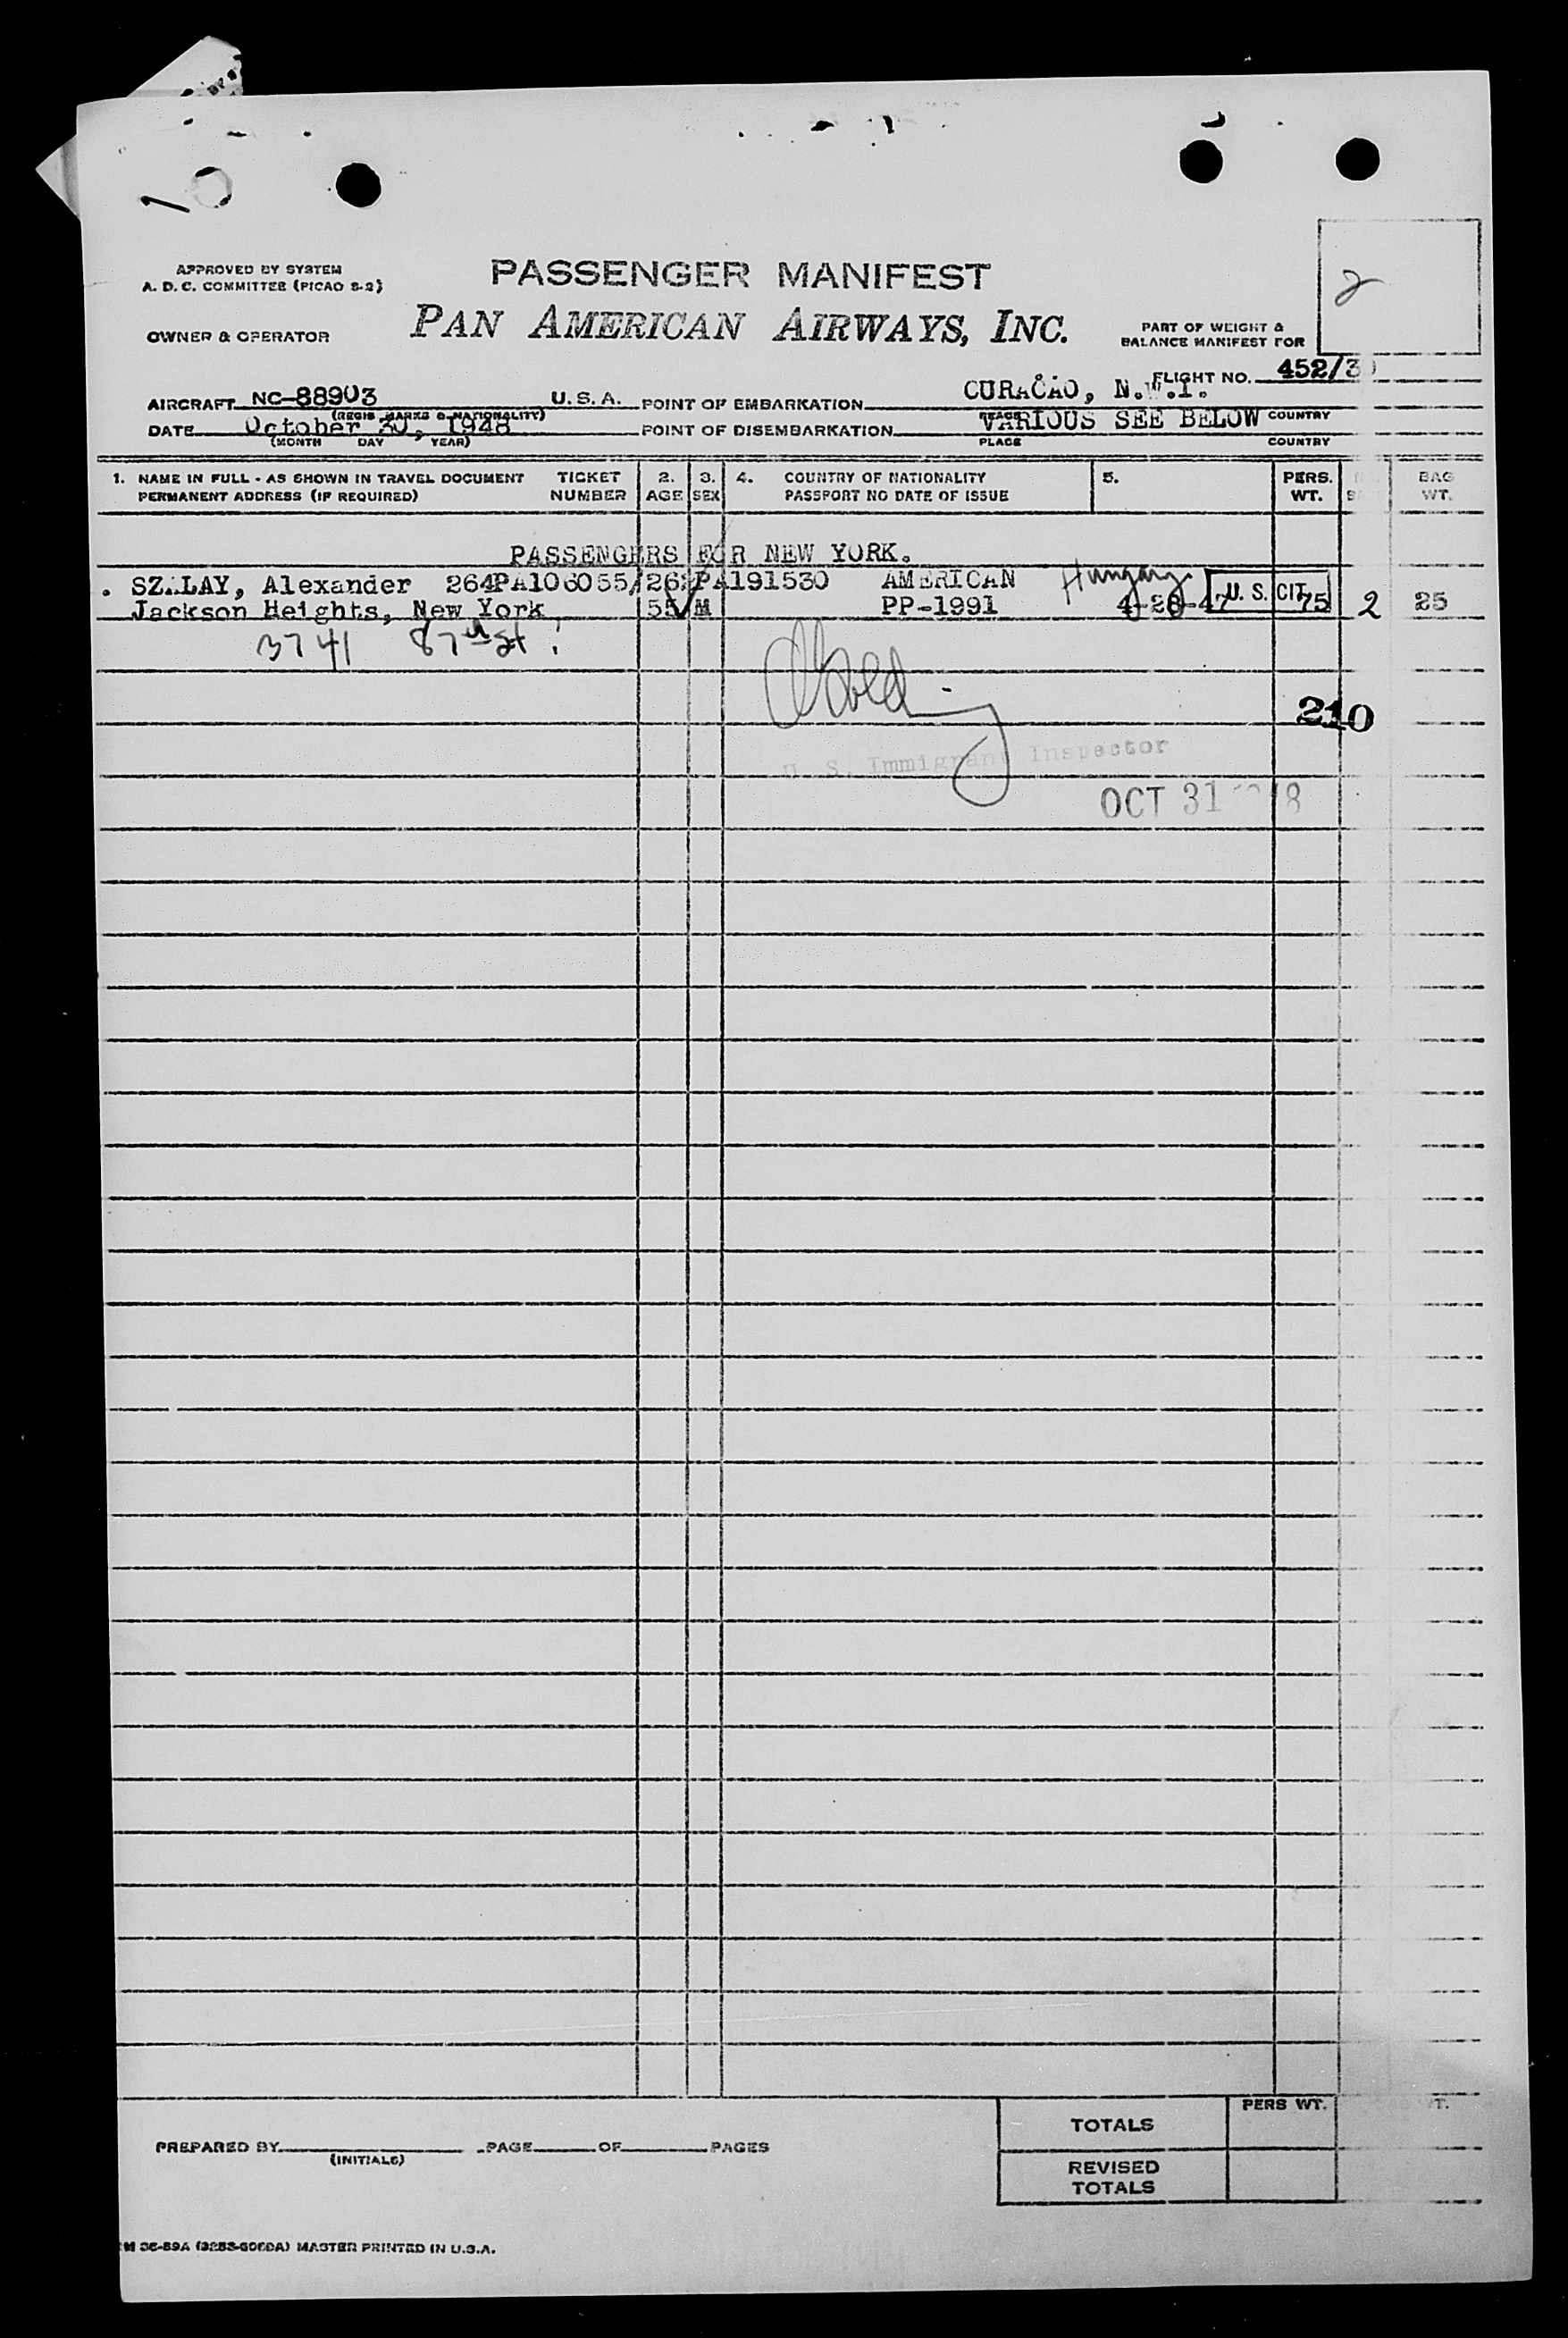 APPROVED BY SYSTEM
A. D. C. COMMITTEE (PICAO S-2)
PASSENGER MANIFEST
2
OWNER & OPERATOR
PAN AMERICAN AIRWAYS, INC.
PART OF WEIGHT &
BALANCE MANIFEST FOR
FLIGHT NO. 452/3
AIRCRAFT NC-88903 U.S.A. POINT OF EMBARKATION CURACAO, N.W.I.
(REGIS MARKS & NATIONALITY) PLACE COUNTRY
DATE October 30, 1948 POINT OF DISEMBARKATION VARIOUS SEE BELOW
(MONTH DAY YEAR) PLACE COUNTRY
1. NAME IN FULL - AS SHOWN IN TRAVEL DOCUMENT TICKET 2. 3. 4. COUNTRY OF NATIONALITY 5. PERS. BAG
PERMANENT ADDRESS (IF REQUIRED) NUMBER AGE SEX PASSPORT NO DATE OF ISSUE WT. WT.
PASSENGERS FOR NEW YORK.
SZALAY, Alexander 264PA106055/262PA191530 AMERICAN Hungary
Jackson Heights, New York 55 M PP-1991 4-28-47 U. S. CIT. 75 2 25
3741 87th St
210
U. S. Immigrant Inspector
OCT 31 1948
PERS WT. WT.
TOTALS
PREPARED BY PAGE OF PAGES
(INITIALS)
REVISED
TOTALS
MASTER PRINTED IN U.S.A.